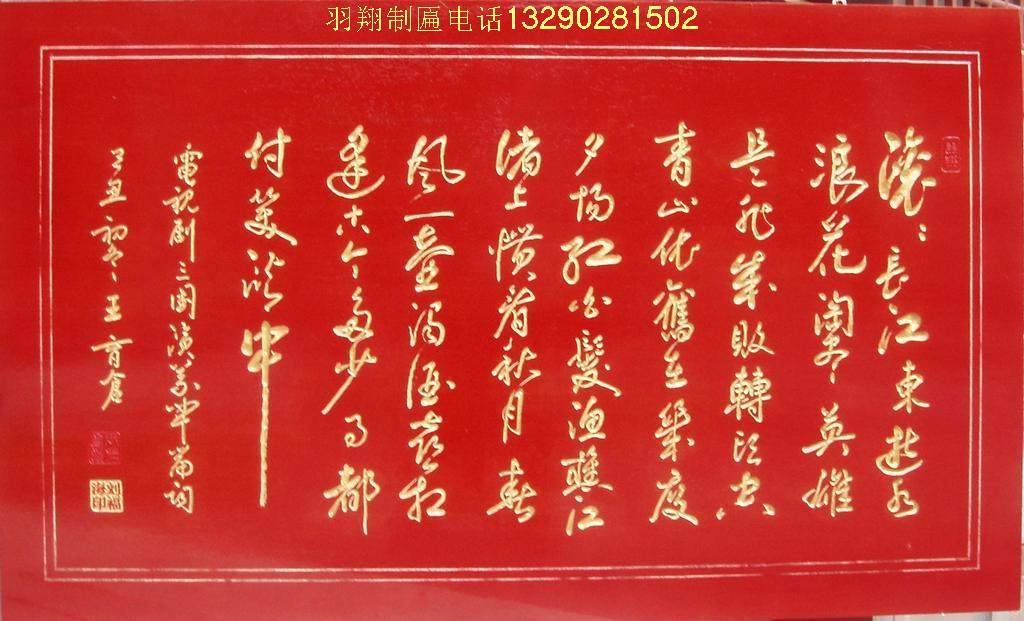 羽翔制匾电话13290281502
滚〻長江東逝水
浪花淘尽英雄
是非成敗轉头空
青山依舊在幾度
夕陽红白髮渔樵江
渚上慣看秋月春
风一壶濁酒喜相
逢古今多少事都
付笑谈中
電视剧三國演义篇词
丁丑初冬王育
刘福海印